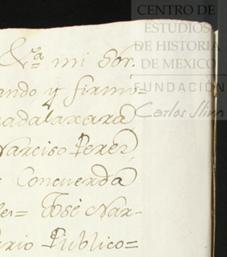 CENTRO DE
ESTUDIOS
DE HISTORIA
DE MÉXICO
FUNDACIÓN
Carlos Slim
&.ra mi Sor.
ando y firmi-
adalaxara
Narciso Perez
Concuerda
José Nar-
rio Publico=